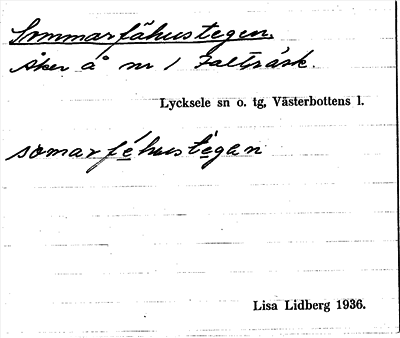 Sommarfähustegen.
Åker å nr 1 Falträsk.
Lycksele sn o. tg, Västerbottens l.
somarféhustégan
Lisa Lidberg 1936.